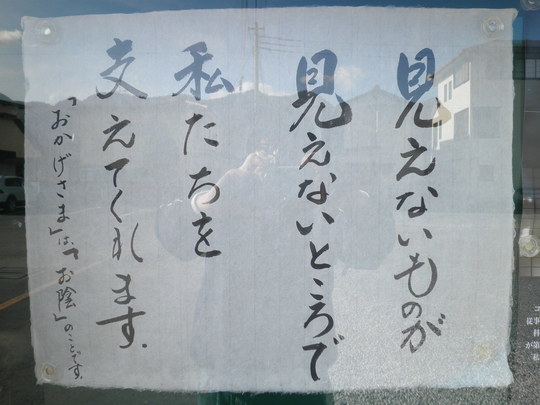 見えないものが
見えないところで
私たちを
支えてくれます.
「おかげさま」は、「お陰」のことです.